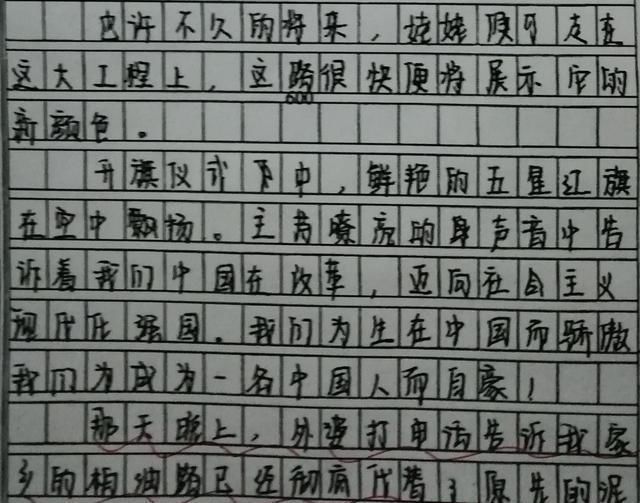 也许不久的将来，姥姥便可走在
这大工程上，这路很快便将展示它的
600
新颜色。
升旗仪式中，鲜艳的五星红旗
在空中飘扬。主嘹亮的声音中告
诉着我们中国在改革，迈向社会主义
现代化强国。我们为生在中国而骄傲
我们为成为一名中国人而自豪！
那天晚上，外婆打电话告诉我家
乡的柏油路已经彻底代替了原先的泥